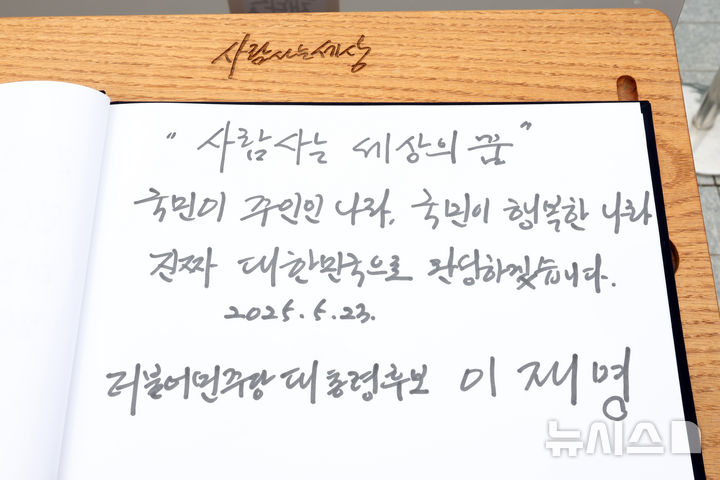 사람사는세상
“사람사는 세상의 꿈”
국민이 주인인 나라, 국민이 행복한 나라
진짜 대한민국으로 완성하겠습니다.
2025.5.23.
더불어민주당 대통령후보 이재명
뉴시스